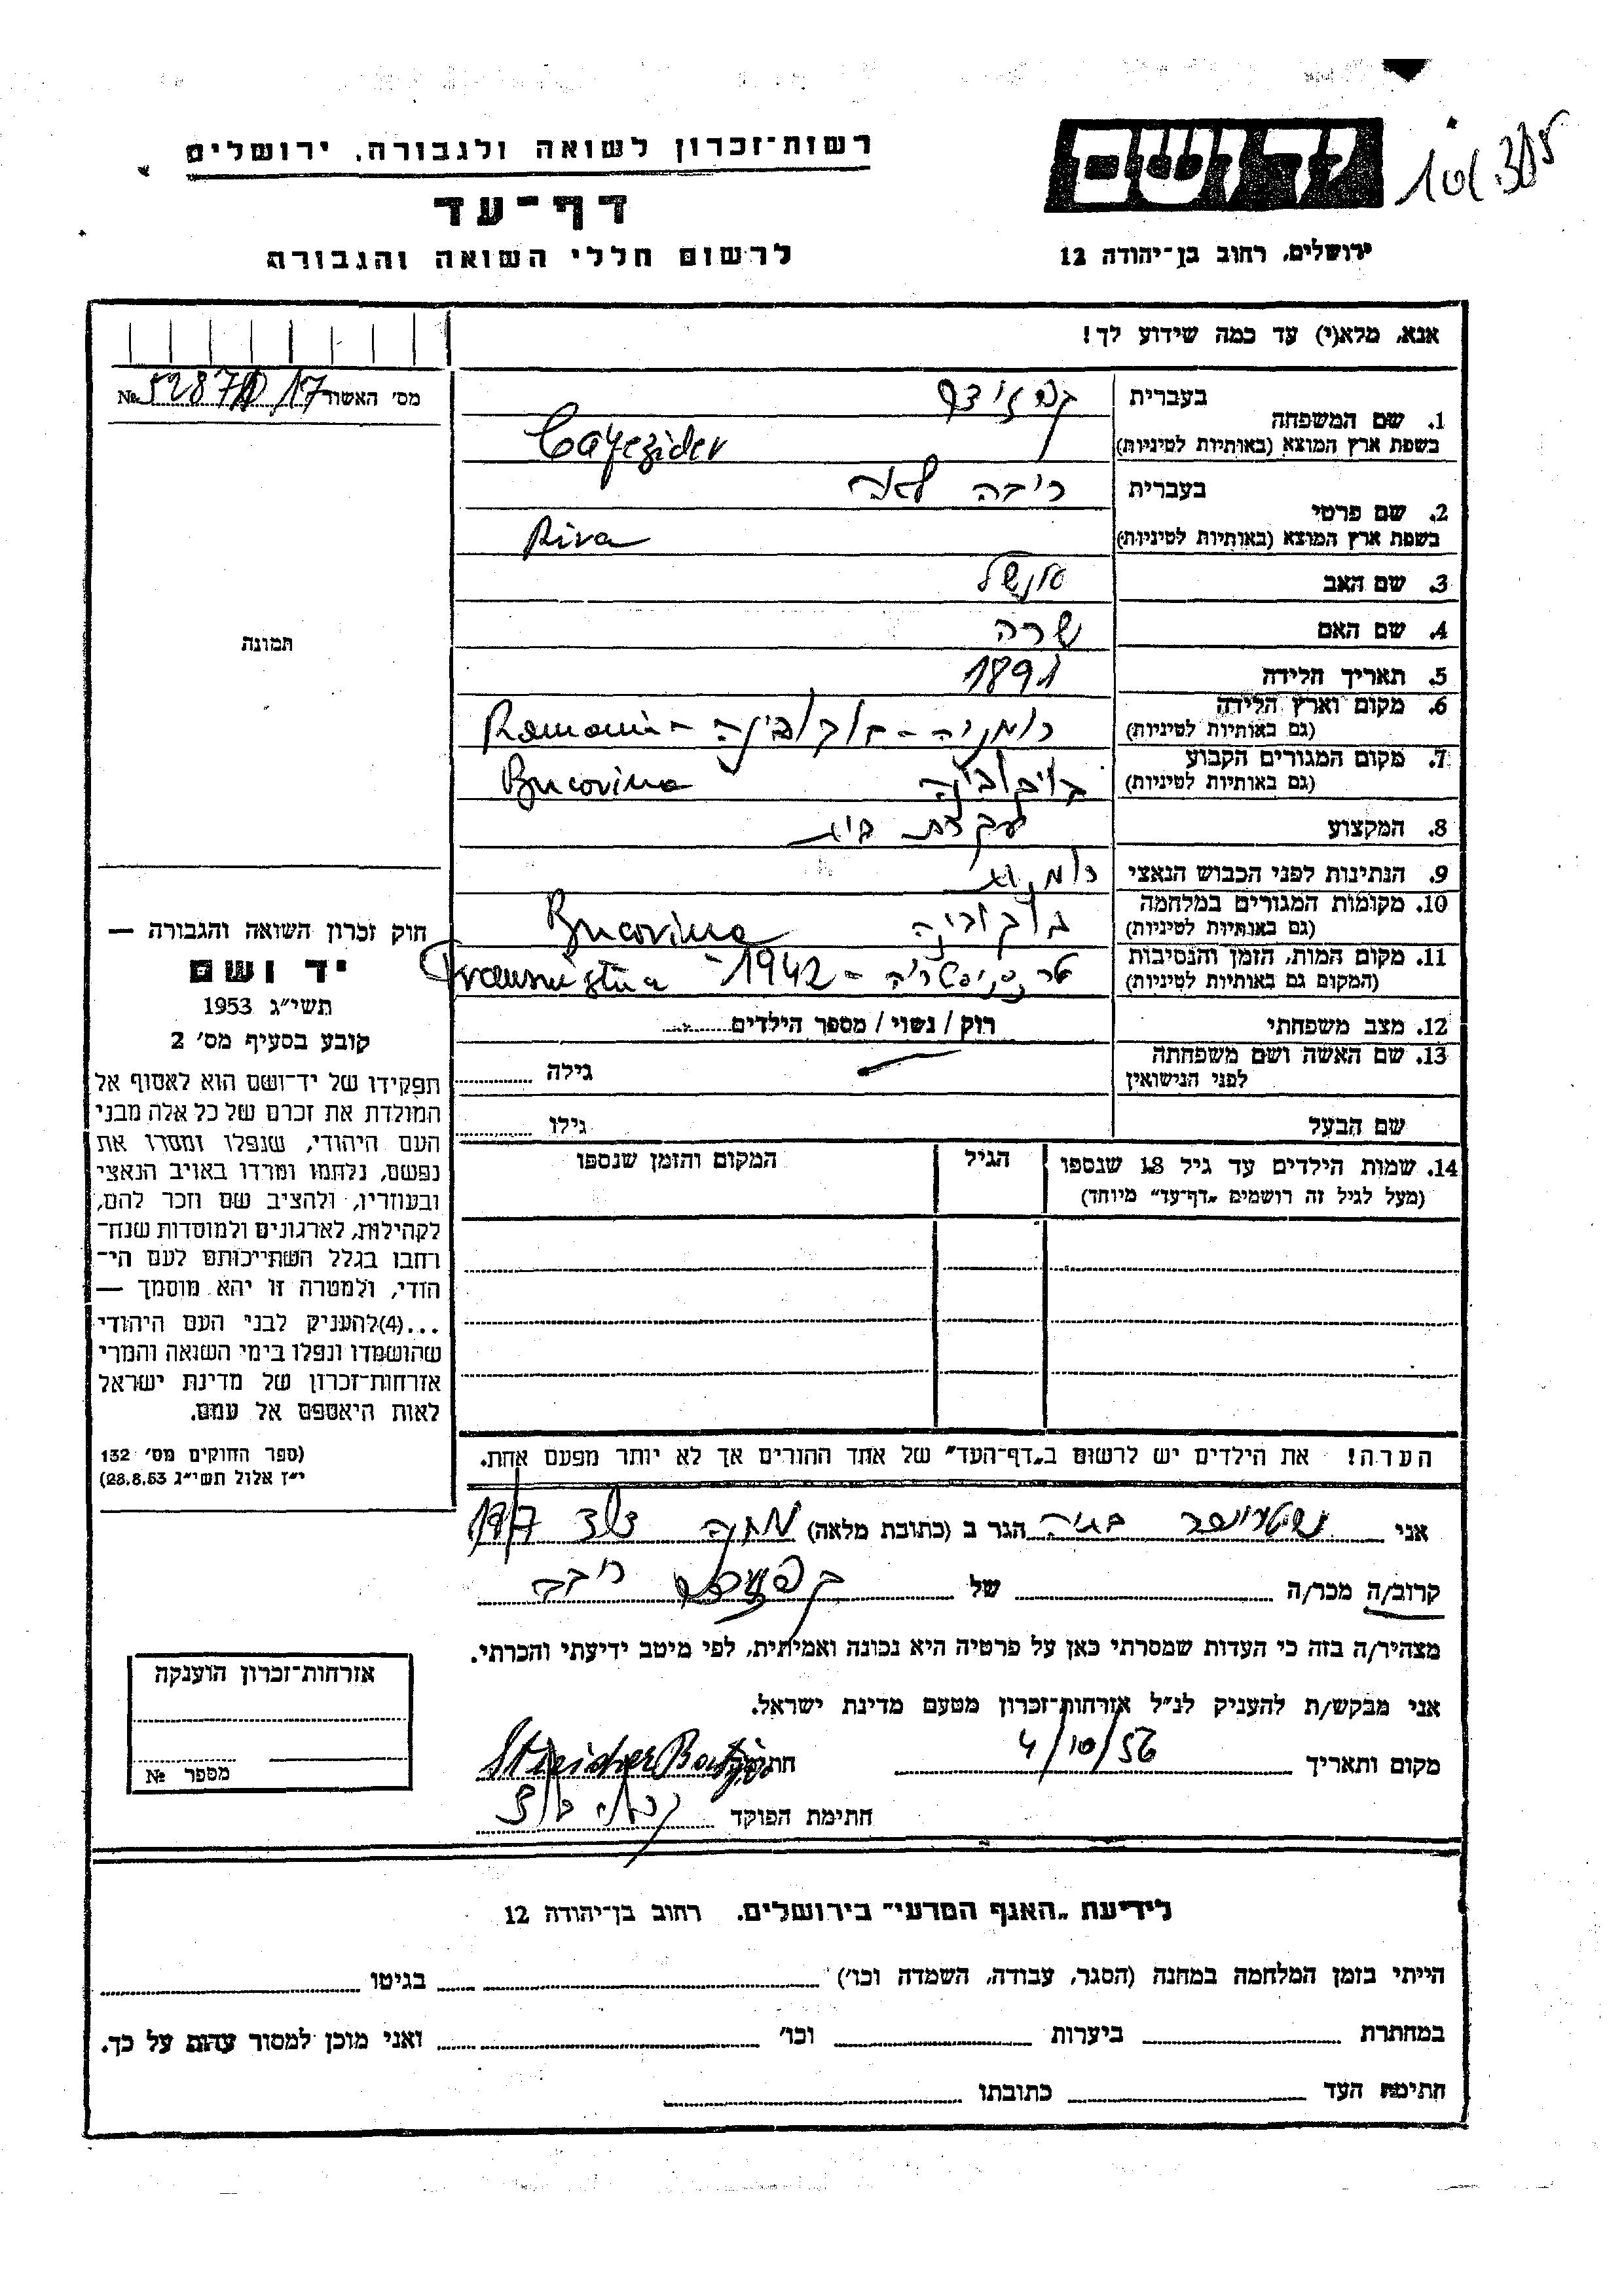 רשות־זכרון לשואה ולגבורה, ירושלים
דף־עד
לרשום חללי השואה והגבורה
ידושם
101.385
ירושלים, רחוב בן־יהודה 12
אנא, מלא(י) עד כמה שידוע לך!
מס׳ האשור №
1. שם המשפחה
בעברית
בשפת ארץ המוצא (באותיות לטיניות)
2. שם פרטי
בעברית
ריבה לאה
בשפת ארץ המוצא (באותיות לטיניות)
Riva
3. שם האב
אנשל
4. שם האם שרה
5. תאריך הלידה 1891
6. מקום וארץ הלידה
(גם באותיות לטיניות)
רומניה - בוקובינה -
7. מקום המגורים הקבוע
(גם באותיות לטיניות)
בוקובינה Bucovina
8. המקצוע עקרת בית
9. הנתינות לפני הכבוש הנאצי
10. מקומות המגורים במלחמה
(גם באותיות לטיניות)
בוקובינה Bucovina
11. מקום המות, הזמן והנסיבות
(המקום גם באותיות לטיניות)
טרנסניסטריה - 1942 - Transnistria
12. מצב משפחתי רוק / נשוי / מספר הילדים
13. שם האשה ושם משפחתה
לפני הנישואין
גילה
שם הבעל גילו
14. שמות הילדים עד גיל 18 שנספו
(מעל לגיל זה רושמים „דף־עד״ מיוחד)
הגיל
המקום והזמן שנספו
הערה! את הילדים יש לרשום ב„דף־העד״ של אחד ההורים אך לא יותר מפעם אחת.
תמונה
חוק זכרון השואה והגבורה —
יד ושם
תשי״ג 1953
קובע בסעיף מס׳ 2
תפקידו של יד־ושם הוא לאסוף אל
המולדת את זכרם של כל אלה מבני
העם היהודי, שנפלו ומסרו את
נפשם, נלחמו ומרדו באויב הנאצי
ובעוזריו, ולהציב שם וזכר להם,
לקהילות, לארגונים ולמוסדות שנח־
רחבו בגלל השתייכותם לעם הי־
הודי, ולמטרה זו יהא מוסמך —
...(4)להעניק לבני העם היהודי
שהושמדו ונפלו בימי השואה והמרי
אזרחות־זכרון של מדינת ישראל
לאות היאספם אל עמם.
(ספר החוקים מס׳ 132
י״ז אלול תשי״ג 28.8.53)
אני הגר ב (כתובת מלאה)
קרוב/ה מכר/ה של ריבה
מצהיר/ה בזה כי העדות שמסרתי כאן על פרטיה היא נכונה ואמיתית, לפי מיטב ידיעתי והכרתי.
אני מבקש/ת להעניק לנ״ל אזרחות־זכרון מטעם מדינת ישראל.
מקום ותאריך 4/10/56 חתימה
חתימת הפוקד
אזרחות־זכרון הוענקה
מספר №
לידיעת „האגף המדעי״ בירושלים, רחוב בן־יהודה 12
הייתי בזמן המלחמה במחנה (הסגר, עבודה, השמדה וכו׳) בגיטו
במחתרת ביערות וכו׳ ואני מוכן למסור עדות על כך.
חתימת העד כתובתו